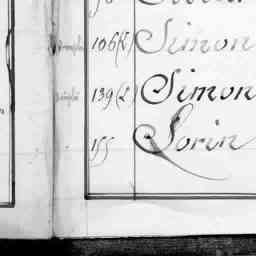 106(2) Simon
139(2) Simon
155 Sorin